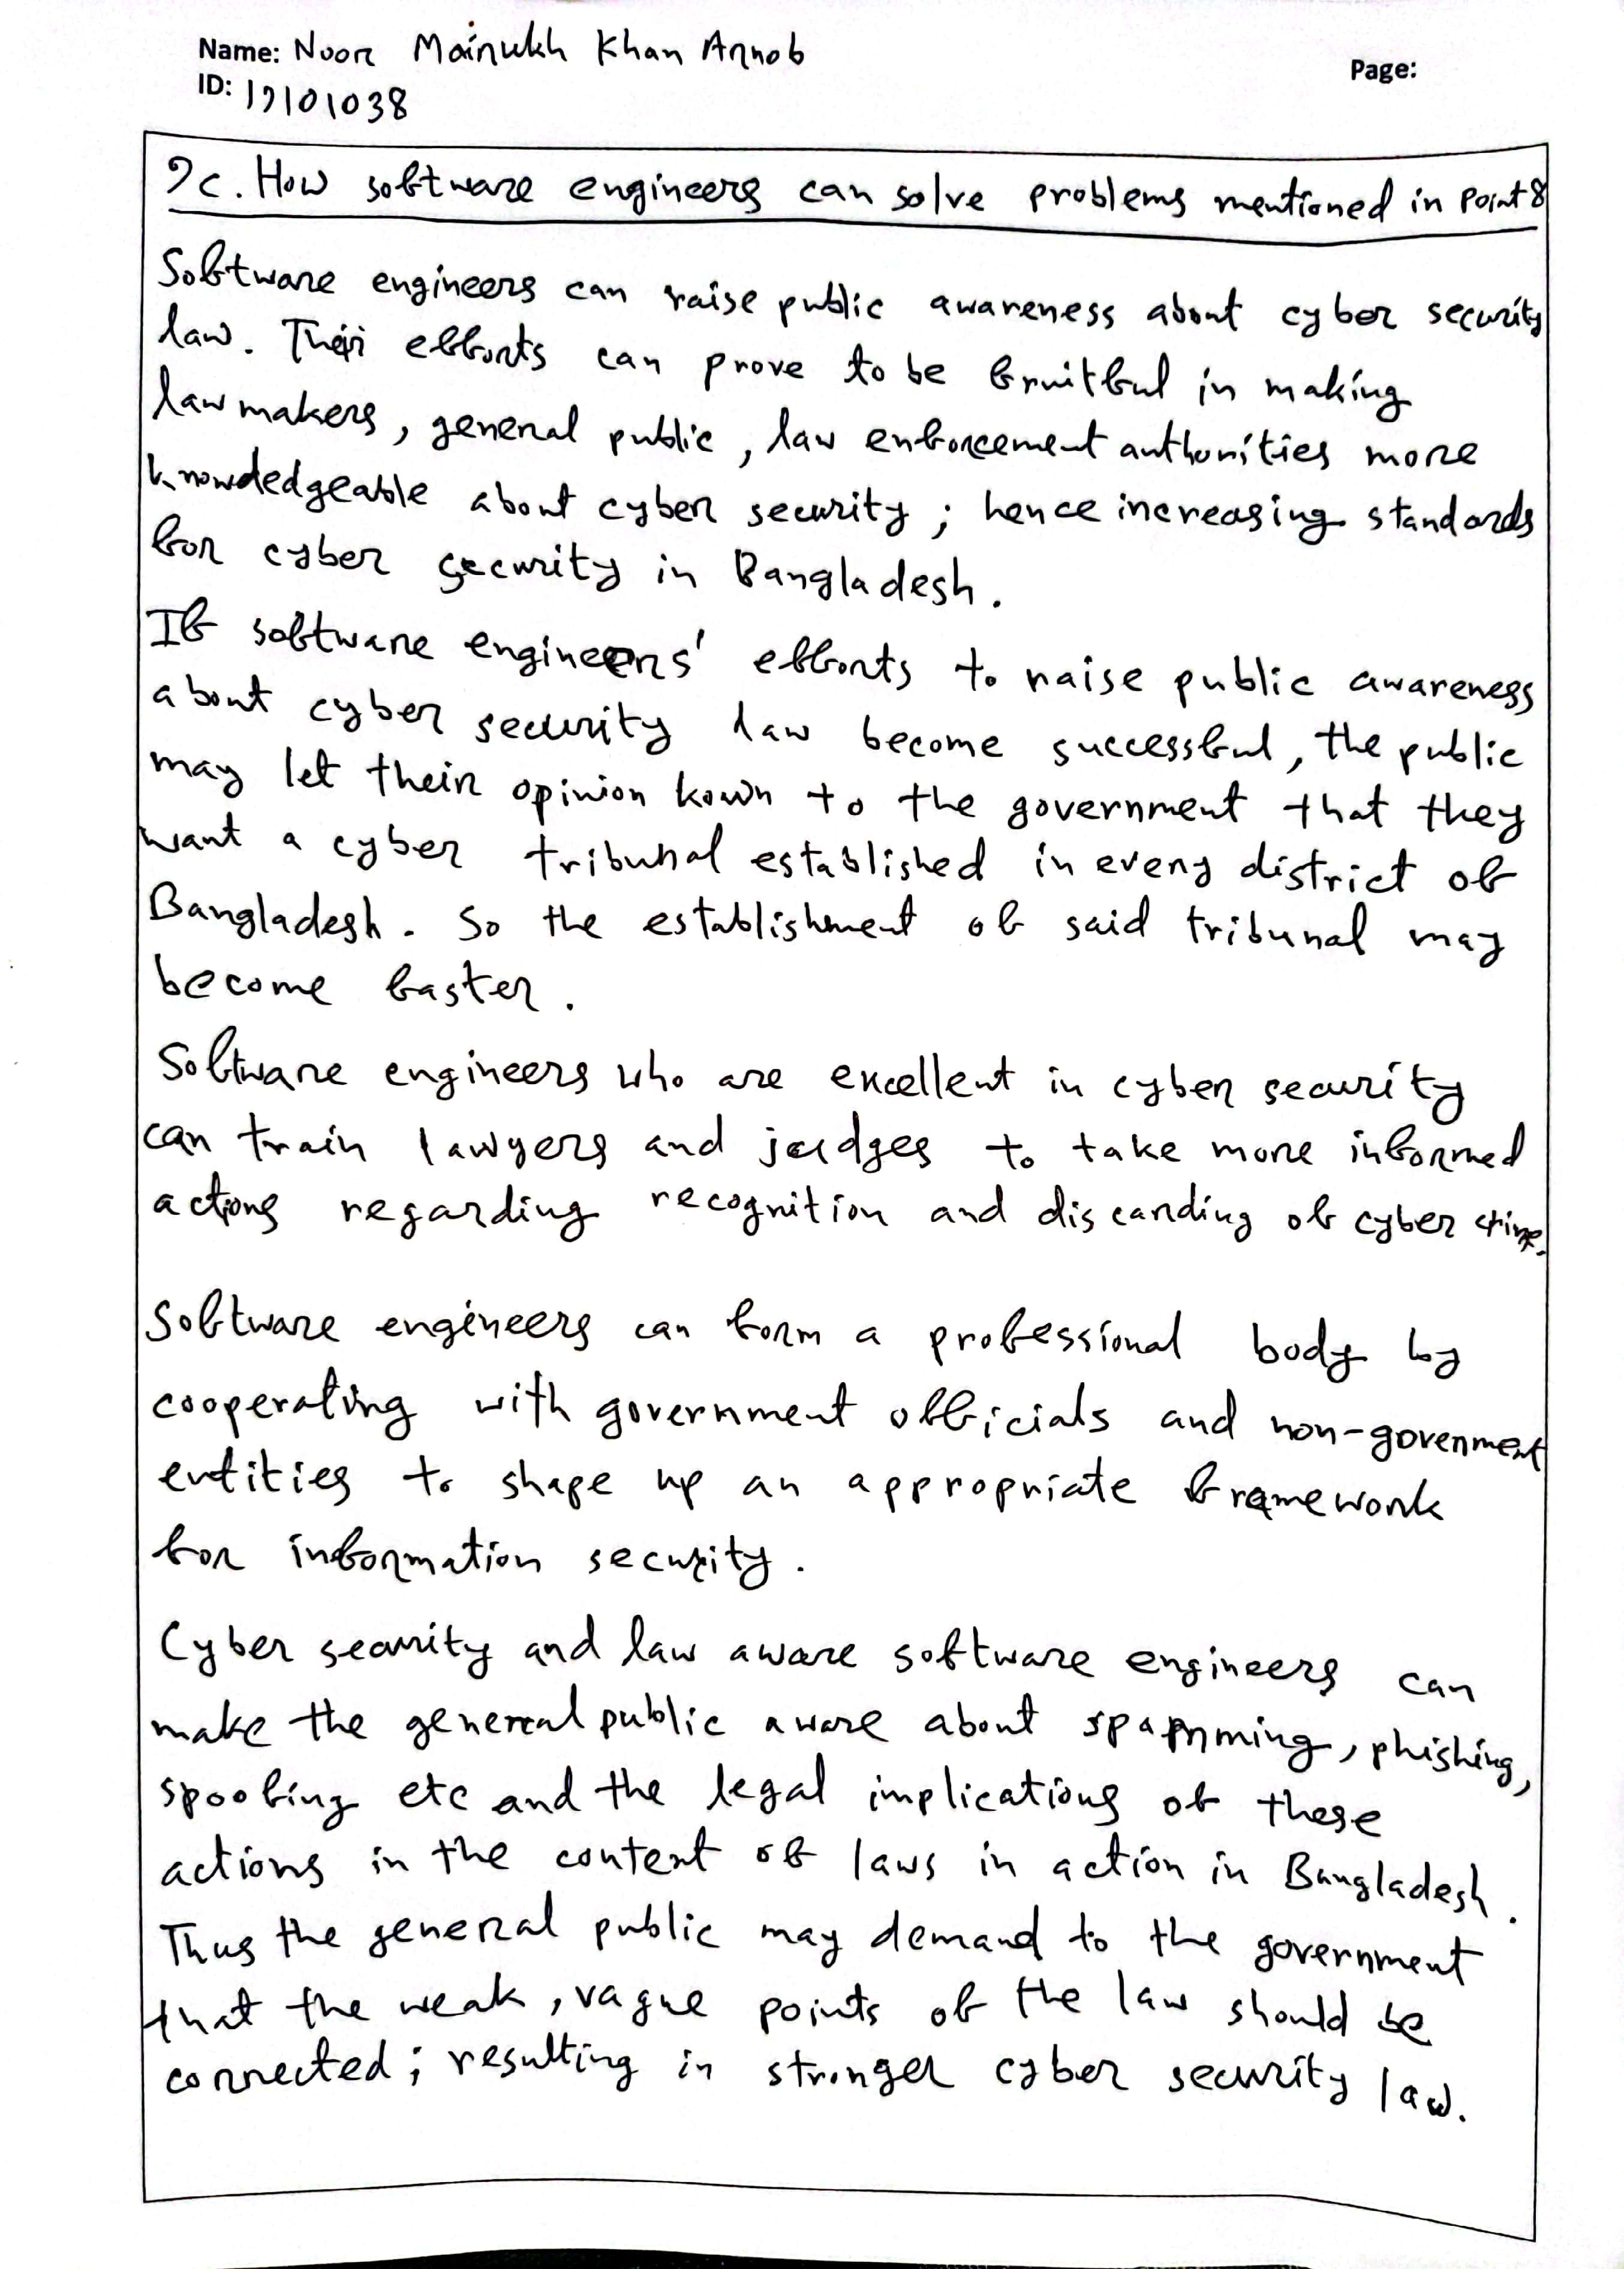 Name: Noor Mainukh Khan Arnob
Page:
ID: 19101038
9c. How software engineers can solve problems mentioned in point 8
Software engineers can raise public awareness about cyber security
law. Their efforts can prove to be fruitful in making
law makers, general public, law enforcement authorities more
knowdedgeable about cyber security; hence increasing standards
for cyber security in Bangladesh.
If software engineers' efforts to raise public awareness
about cyber security law become successful, the public
may let their opinion kown to the government that they
want a cyber tribunal established in every district of
Bangladesh. So the establishment of said tribunal may
become faster.
Software engineers who are excellent in cyber security
can train lawyers and judges to take more informed
actions regarding recognition and discarding of cyber crime.
Software engineers can form a professional body by
cooperating with government officials and non-govenment
entities to shape up an appropriate framework
for information security.
Cyber security and law aware software engineers can
make the general public aware about spamming, phishing,
spoofing etc and the legal implications of these
actions in the context of laws in action in Bangladesh.
Thus the general public may demand to the government
that the weak, vague points of the law should be
corrected; resulting in stronger cyber security law.